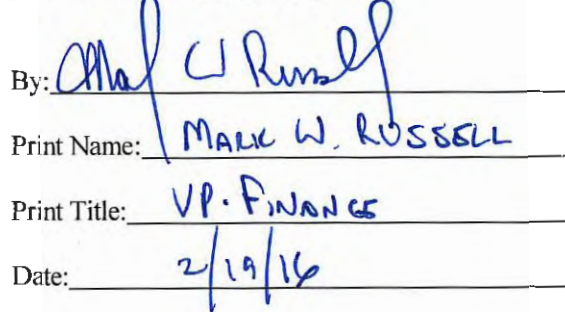 By: Mark W Russell
Print Name: MARK W. RUSSELL
Print Title: VP. FINANCE
Date: 2/19/16